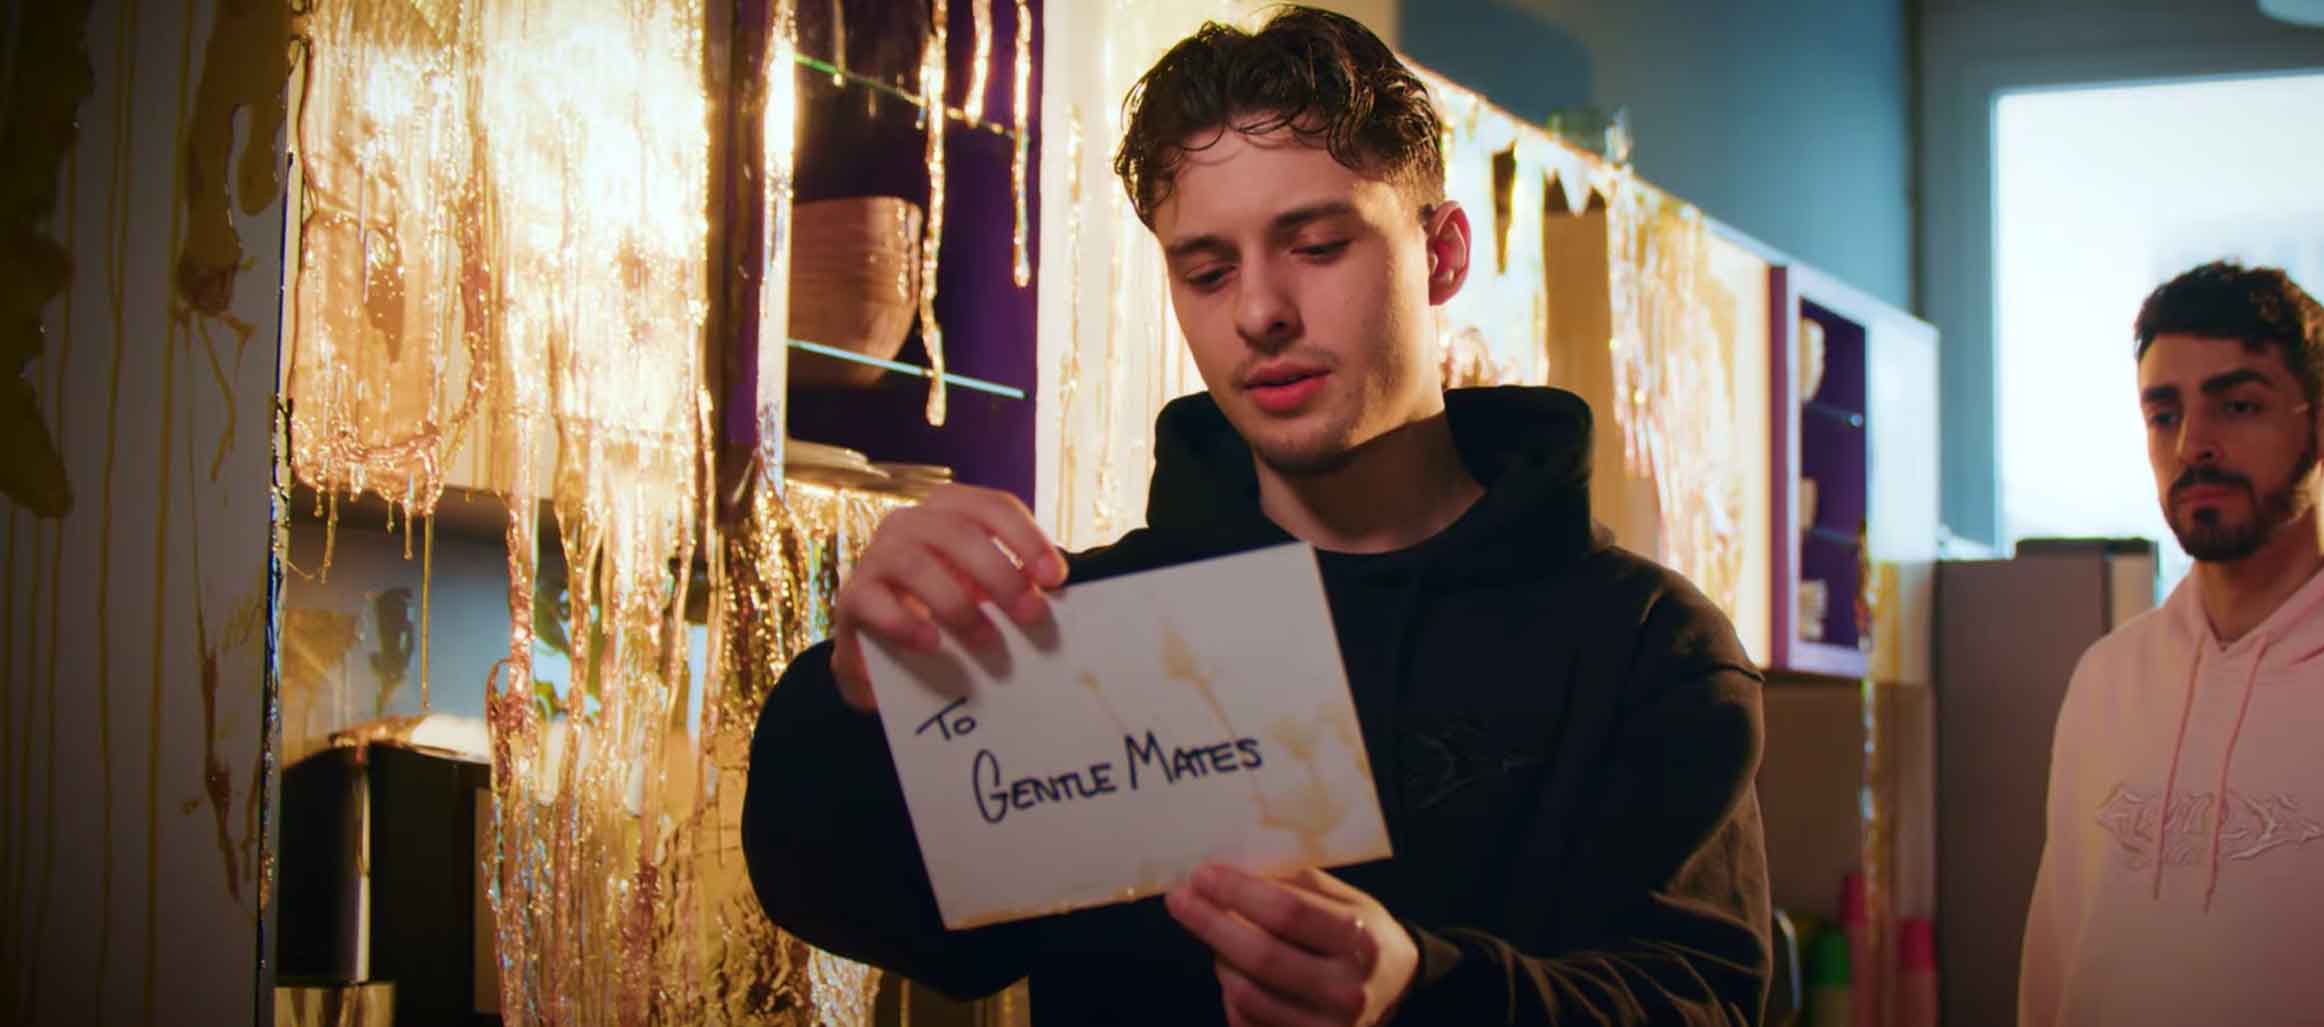 To
GENTLE MATES